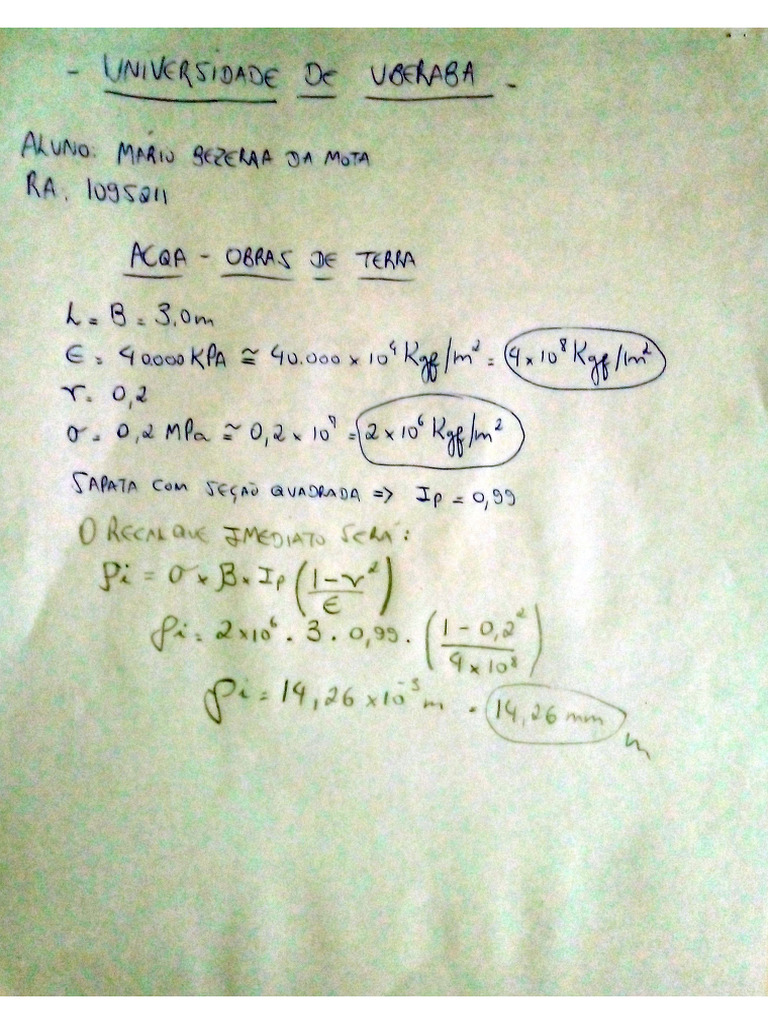 - UNIVERSIDADE DE UBERABA -
ALUNO: MÁRIO BEZERRA DA MOTA
RA: 1095211
ACQA - OBRAS DE TERRA
L = B = 3,0m
E = 40.000 KPA ≅ 40.000 x 10⁴ Kgf/m² = 4 x 10⁸ Kgf/m²
r = 0,2
σ = 0,2 MPa ≅ 0,2 x 10⁷ = 2 x 10⁶ Kgf/m²
SAPATA COM SEÇÃO QUADRADA => Ip = 0,99
O RECALQUE IMEDIATO SERÁ:
ρi = σ x B x Ip (1 - r² / E)
ρi = 2x10⁶ . 3 . 0,99 . (1 - 0,2² / 4 x 10⁸)
ρi = 14,26 x 10⁻³ m = 14,26 mm